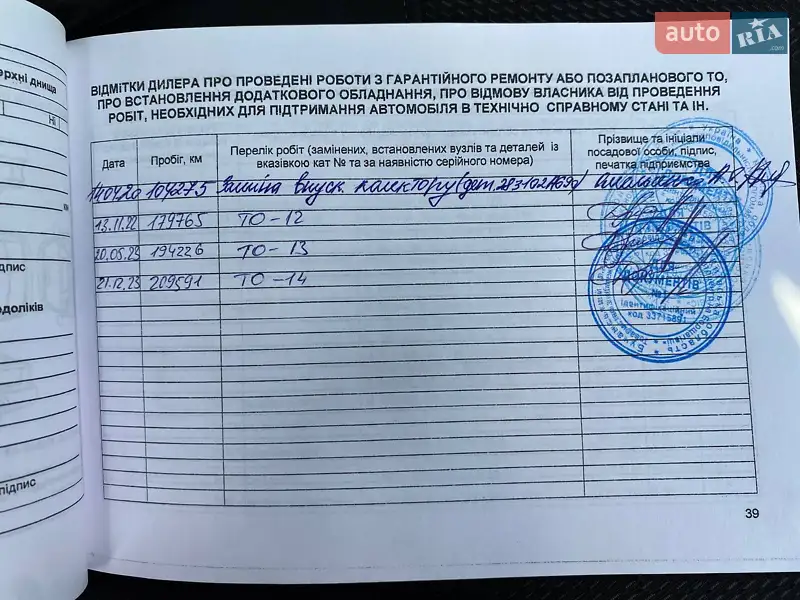 auto RIA
ерхні днища
Ні
ВІДМіТКИ ДИЛЕРА ПРО ПРОВЕДЕНІ РОБОТИ З ГАРАНТІЙНОГО РЕМОНТУ АБО ПОЗАПЛАНОВОГО ТО,
ПРО ВСТАНОВЛЕННЯ ДОДАТКОВОГО ОБЛАДНАННЯ, ПРО ВІДМОВУ ВЛАСНИКА ВІД ПРОВЕДЕННЯ
РОБІТ, НЕОБХІДНИХ ДЛЯ ПІДТРИМАННЯ АВТОМОБІЛЯ В ТЕХНІЧНО СПРАВНОМУ СТАНІ ТА ІН.
Дата
Пробіг, км
Перелік робіт (замінених, встановлених вузлів та деталей із
вказівкою кат № та за наявністю серійного номера)
Прізвище та ініціали
посадової особи, підпис,
печатка підприємства
14.04.20 104275 Заміна впуск. колектору
13.11.22 179765 ТО-12
20.05.23 194226 ТО-13
21.12.23 209591 ТО-14
ДОКУМЕНТІВ
Ідентифікаційний
код
км
ідпис
підпис
39